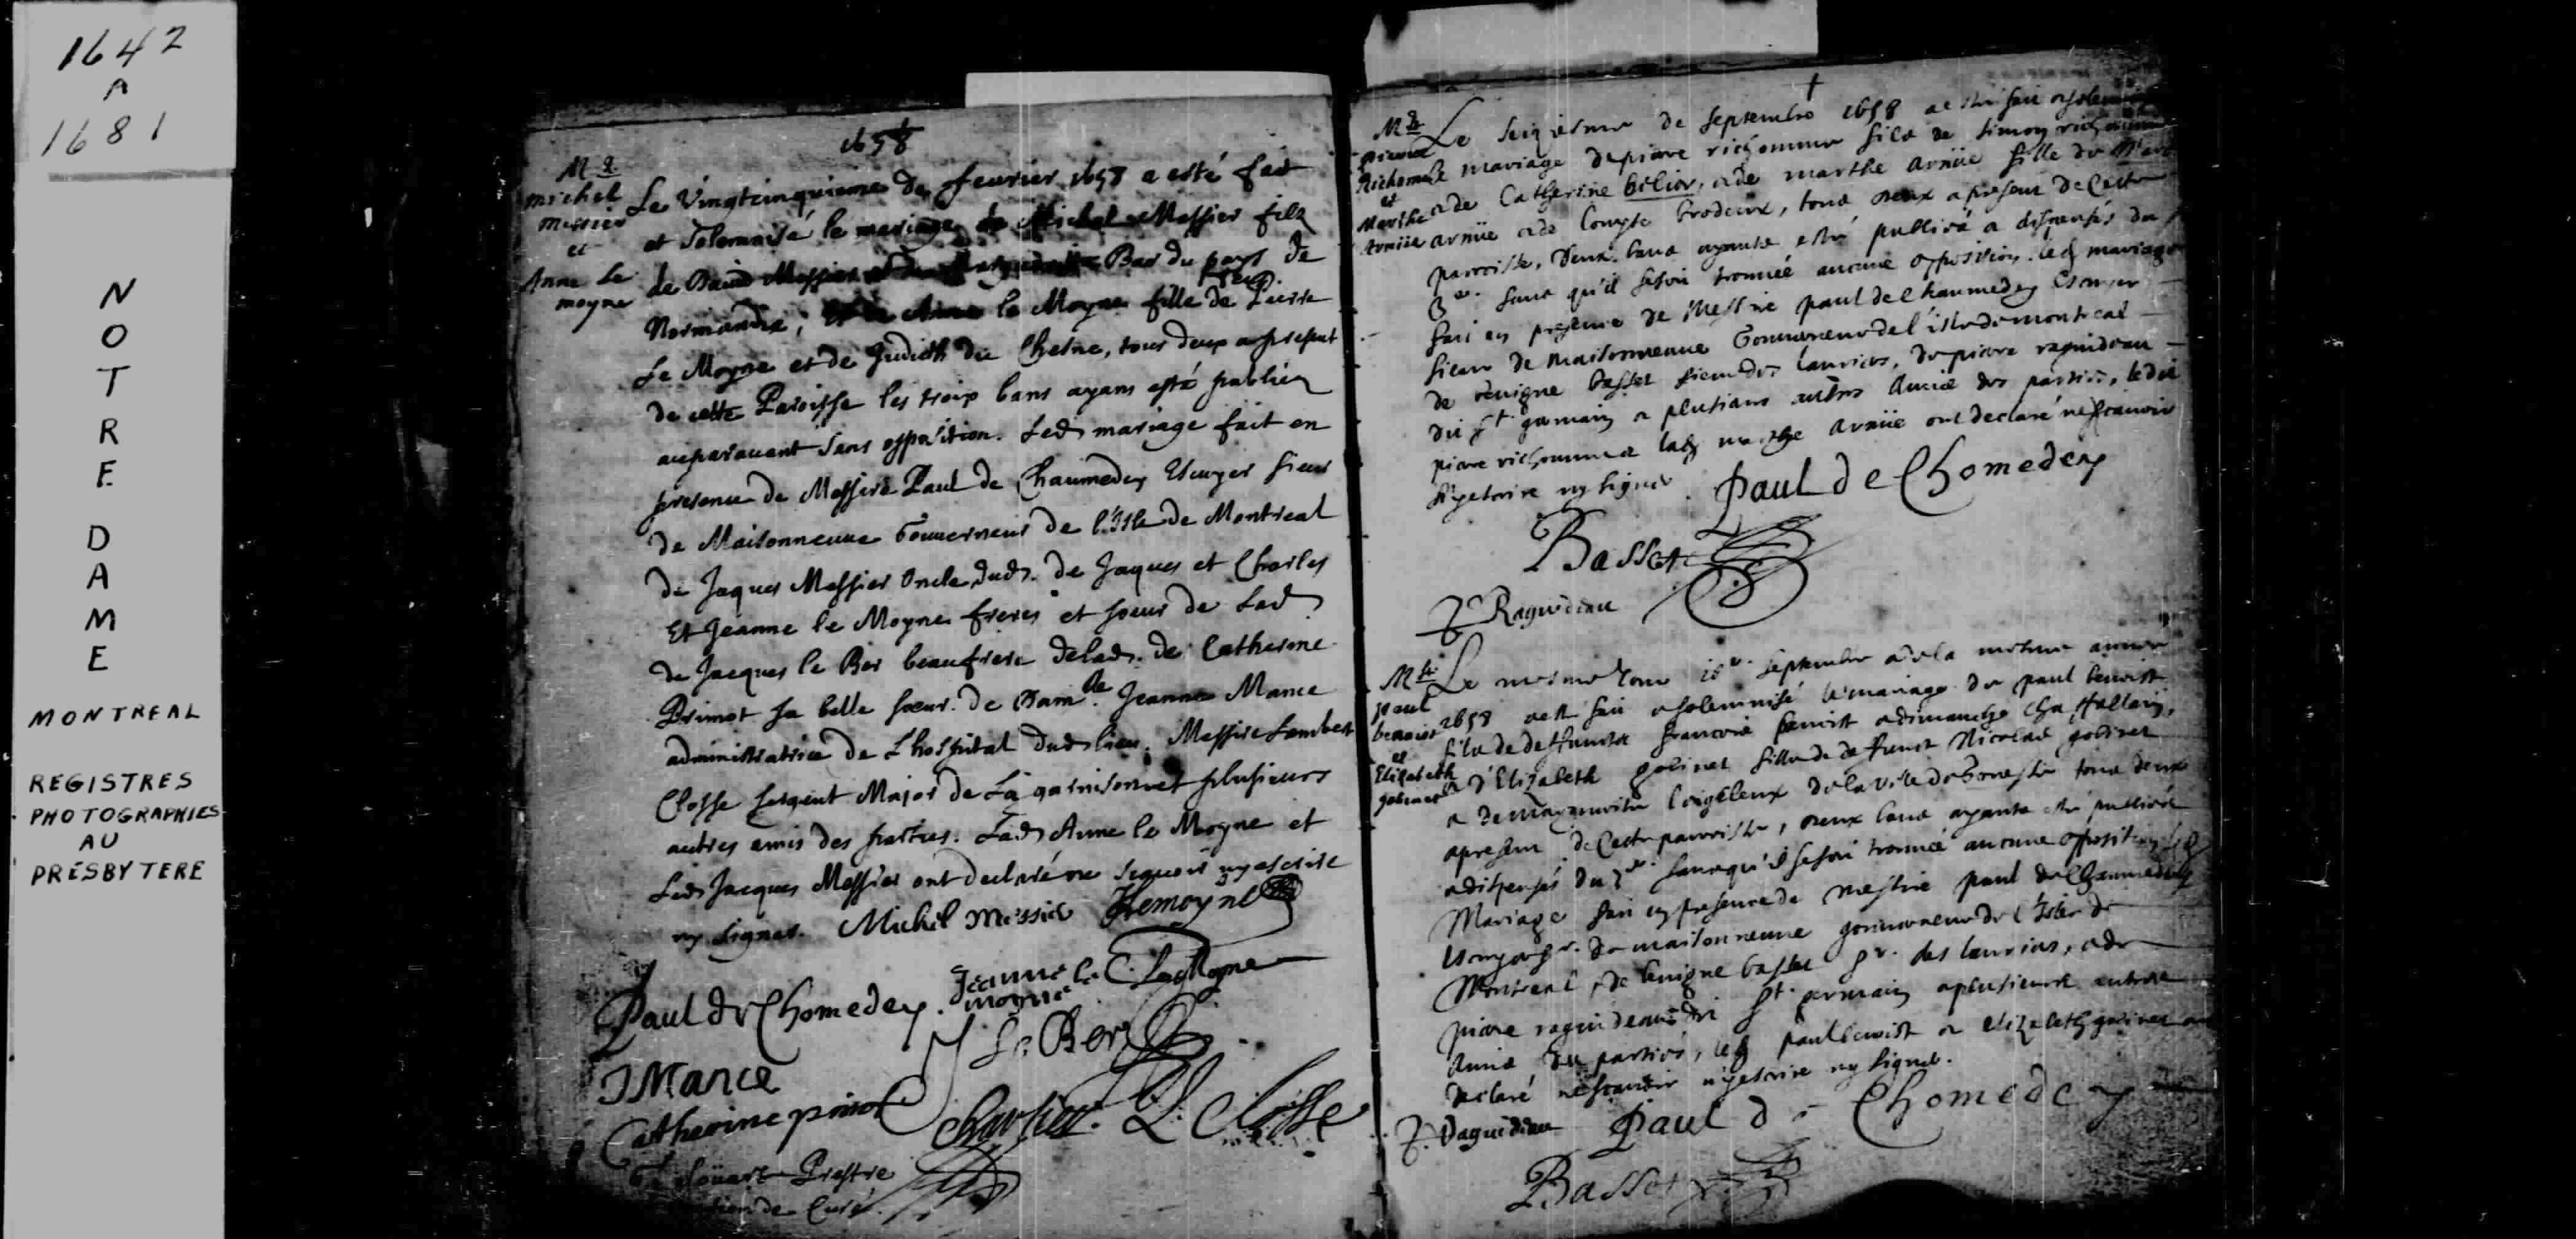 1642
A
1681
NOTRE
DAME
MONTREAL
REGISTRES
PHOTOGRAPHIES
AU
PRÉSBYTERE
1658
M.g.
michel
Messier
et
Anne Le
moyne
Le Vingtcinquieme de feurier 1658 a esté fait
et solemnisé le mariage de Michel Messier filz
de David Messier et de Bar du pays de
Normandie; Et de Anne le Moyne fille de feu Pierre
Le Moyne et de Judith du Chesne, tous deux a present
de cette Paroisse les trois bans ayans esté publiez
auparauant sans opposition. Led mariage fait en
presence de Messire Paul de Chaumedey Escuyer sieur
de Maisonneuue Gouuerneur de l'Isle de Montreal
de Jaques Messier Oncle dud. de Jaques et Charles
Et Jeanne le Moyne freres et soeur de Lad
de Jacques le Ber beaufrere delad. de Catherine
Primot sa belle soeur. de Damlle Jeanne Mance
administratrice de L'hospital dud lieu. Messire Lambert
Closse sergent Major de La garnison et plusieurs
autres amis des parties. Lad Anne le Moyne et
Led Jacques Messier ont declaré ne sçauoir ny escrire
ny signer. Michel Messier Lemoyne
Paul de Chomedey. Jeanne le moyne C. Le Moyne
J. Le Ber
J Mance
Catherine primot L. Closse
Souart Prestre
de Curé.
M.g.
pierre
Richome
et
Marthe
Arnüe
Le seiziesme de septembre 1658 a esté fait et solemnisé
le mariage de pierre richomme filz de simon richomme
et de Catherine bilior, et de marthe arnüe fille de
arnüe et de brodeux, tous deux a present de Cette
parroisse, deux bans ayants esté publiés et dispensés du
3e. sans qu'il se soit trouué aucune opposition. led mariage
fait en presence de Messire paul de Chaumedey Escuyer
sieur de maisonneuue Gouuerneur de l'isle de montreal
de benigne basset sieur des lauriers, de pierre raguideau
dit st germain et plusieurs autres amis des parties, ledit
pierre richomme et lad marthe arnüe ont declaré ne scauoir
ny escrire ny signer. Paul de Chomedey
Basset
P Raguideau
M.g.
paul
benoist
et
Elizabeth
gobinet
Le mesme Jour 16e. septembre de la mesme année
1658 a esté fait et solemnisé le mariage de paul benoist
filz de deffunct françois benoist et dimanche Chastellain,
et d'Elizabeth gobinet fille de deffunct Nicolas gobinet
et de Marguerite de la ville de tous deux
a present de Cette parroisse, deux bans ayants esté publiés
et dispensés du 3e. sans qu'il se soit trouué aucune opposition led
Mariage fait en presence de messire paul de Chaumedey
Escuyer sr. de maisonneuue gouuerneur de l'Isle de
Montreal, de benigne basset sr. des lauriers, et de
pierre raguideau dit st. germain et plusieurs autres
amis des parties, led paul benoist et elizabeth gobinet ont
declaré ne scauoir ny escrire ny signer.
P. Raguideau Paul de Chomedey
Basset